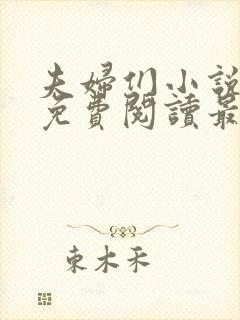 夫婦们小說
免費閱讀最
東木禾